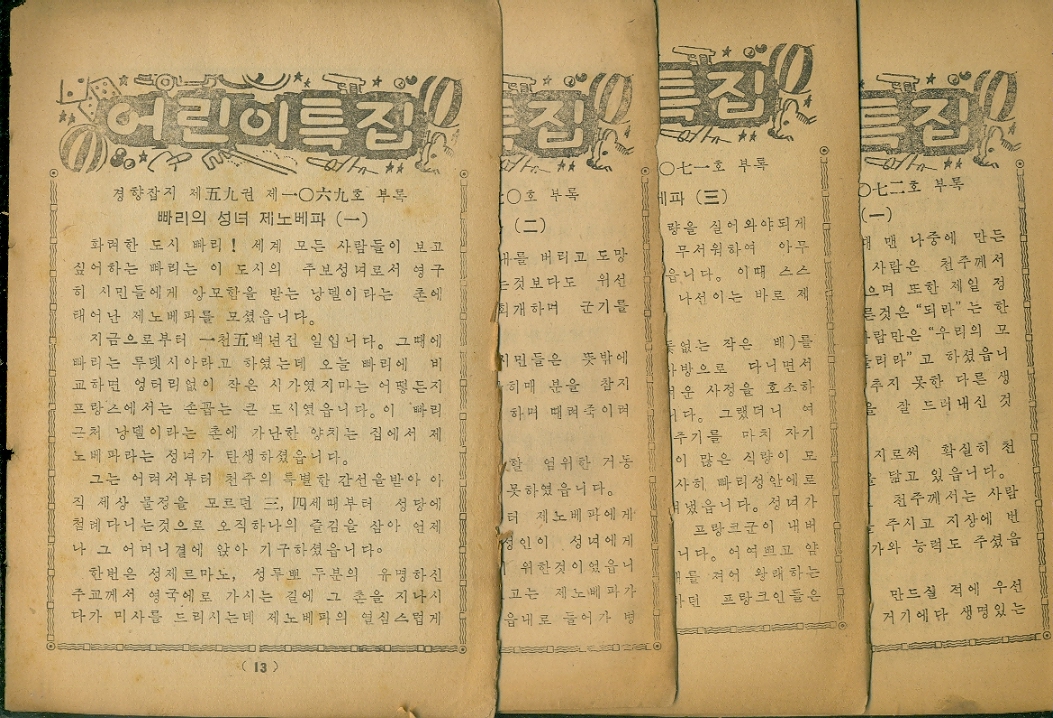 어린이특집
경향잡지 제五九권 제一〇六九호 부록
빠리의 성녀 제노베파 (一)
화려한 도시 빠리! 세계 모든 사람들이 보고
싶어하는 빠리는 이 도시의 주보성녀로서 영구
히 시민들에게 앙모함을 받는 낭델이라는 촌에
태어난 제노베파를 모셨읍니다.
지금으로부터 一천五백년전 일입니다. 그때에
빠리는 루뎃시아라고 하였는데 오늘 빠리에 비
교하면 엉터리없이 작은 시가였지마는 어떻든지
프랑스에서는 손꼽는 큰 도시였읍니다. 이 빠리
근처 낭델이라는 촌에 가난한 양치는 집에서 제
노베파라는 성녀가 탄생하셨읍니다.
그는 어려서부터 천주의 특별한 간선을받아 아
직 세상 물정을 모르던 三, 四세때부터 성당에
첨례다니는것으로 오직하나의 즐김을 삼아 언제
나 그 어머니곁에 앉아 기구하셨읍니다.
한번은 성제르마노, 성루뽀 두분의 유명하신
주교께서 영국에로 가시는 길에 그 촌을 지나시
다가 미사를 드리시는데 제노베파의 열심스럽게
( 13 )
특집
〇호 부록
(二)
대를 버리고 도망
는것보다도 위선
회개하며 군기를
시민들은 뜻밖에
히매 분을 참지
하며 때려죽이려
할 엄위한 거동
못하였읍니다.
터 제노베파에게
성인이 성녀에게
위한것이었읍니
고는 제노베파가
읍내로 들어가 병
특집
〇七一호 부록
베파 (三)
량을 실어와야되게
무서워하여 아무
읍니다. 이때 스스
나선이는 바로 제
돛없는 작은 배)를
사방으로 다니면서
려운 사정을 호소하
니다. 그랬더니 여
주기를 마치 자기
이 많은 식량이 모
사히 빠리성안에로
냈읍니다. 성녀가
프랑크군이 내버
니다. 어여쁘고 얌
배를 저어 왕래하는
하던 프랑크인들은
특집
〇七二호 부록
(一)
때 맨 나중에 만든
사람은 천주께서
으며 또한 제일 정
른것은 “되라”는 한
사람만은 “우리의 모
들리라”고 하셨읍니
추지 못한 다른 생
을 잘 드러내신 것
지로써 확실히 천
을 닮고 있읍니다.
천주께서는 사람
주시고 지상에 번
가와 능력도 주셨읍
만드실 적에 우선
거기에다 생명있는